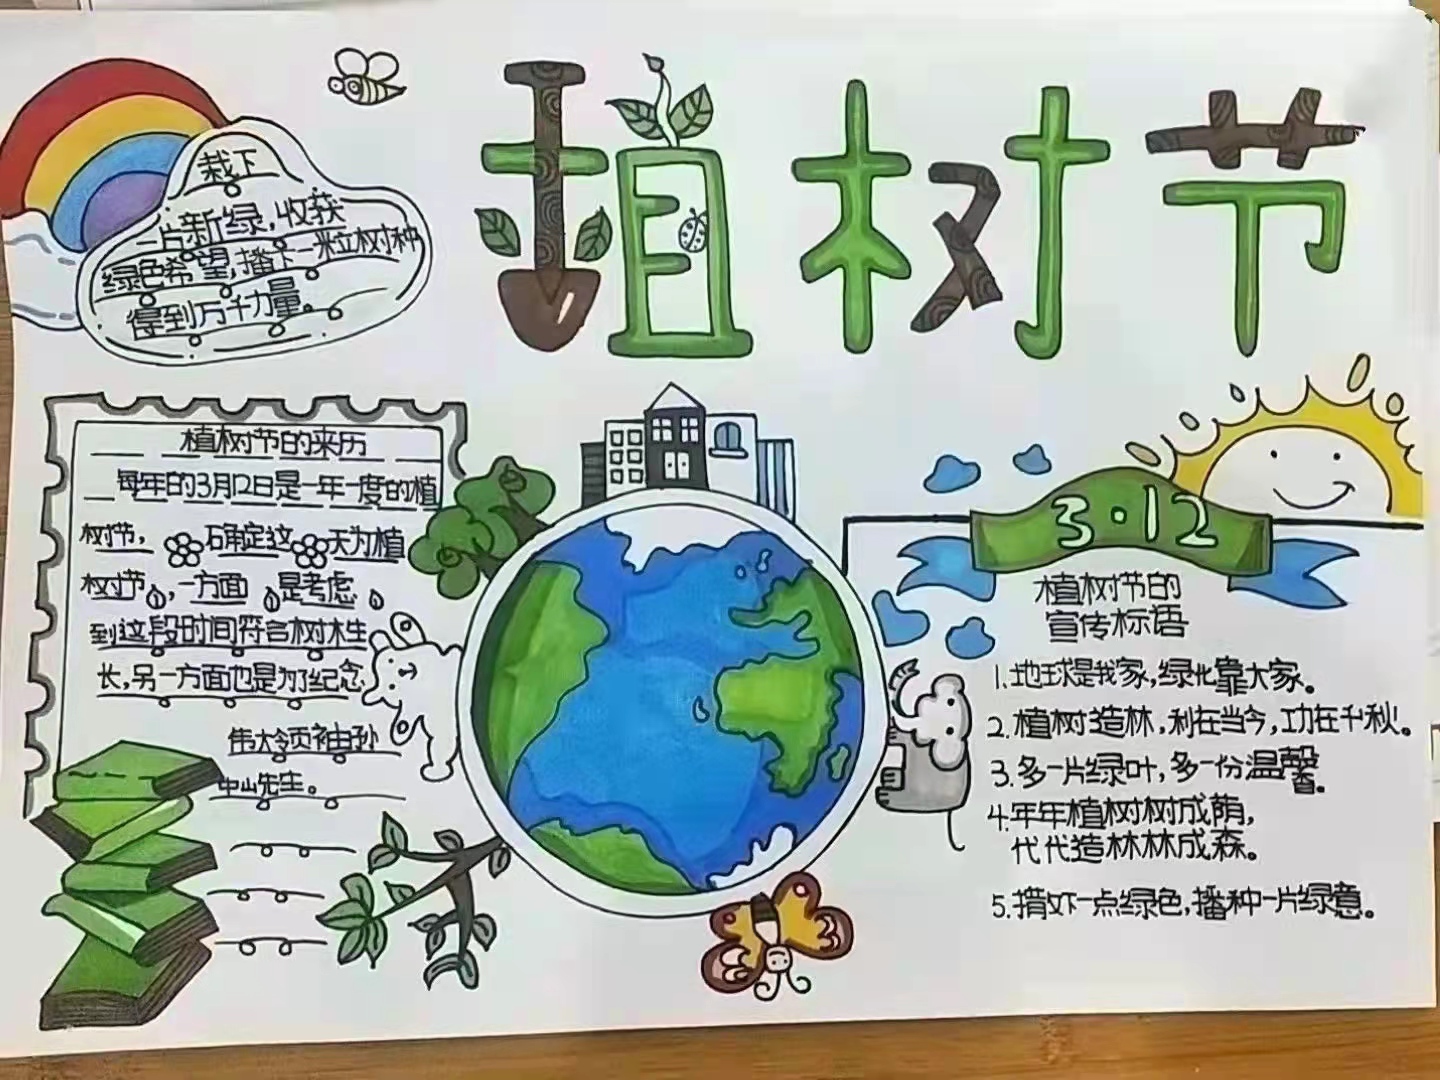 植树节
栽下
一片新绿,收获
绿色希望,播下一粒树种
得到万千力量。
植树节的来历
每年的3月12日是一年一度的植
树节,确定这天为植
树节,一方面是考虑
到这段时间符合树木生
长,另一方面也是为了纪念
伟大领袖孙
中山先生。
3·12
植树节的
宣传标语
1.地球是我家,绿化靠大家。
2.植树造林,利在当今,功在千秋!。
3.多一片绿叶,多一份温馨。
4.年年植树树成荫,
代代造林林成森。
5.一点绿色,播种一片绿意。